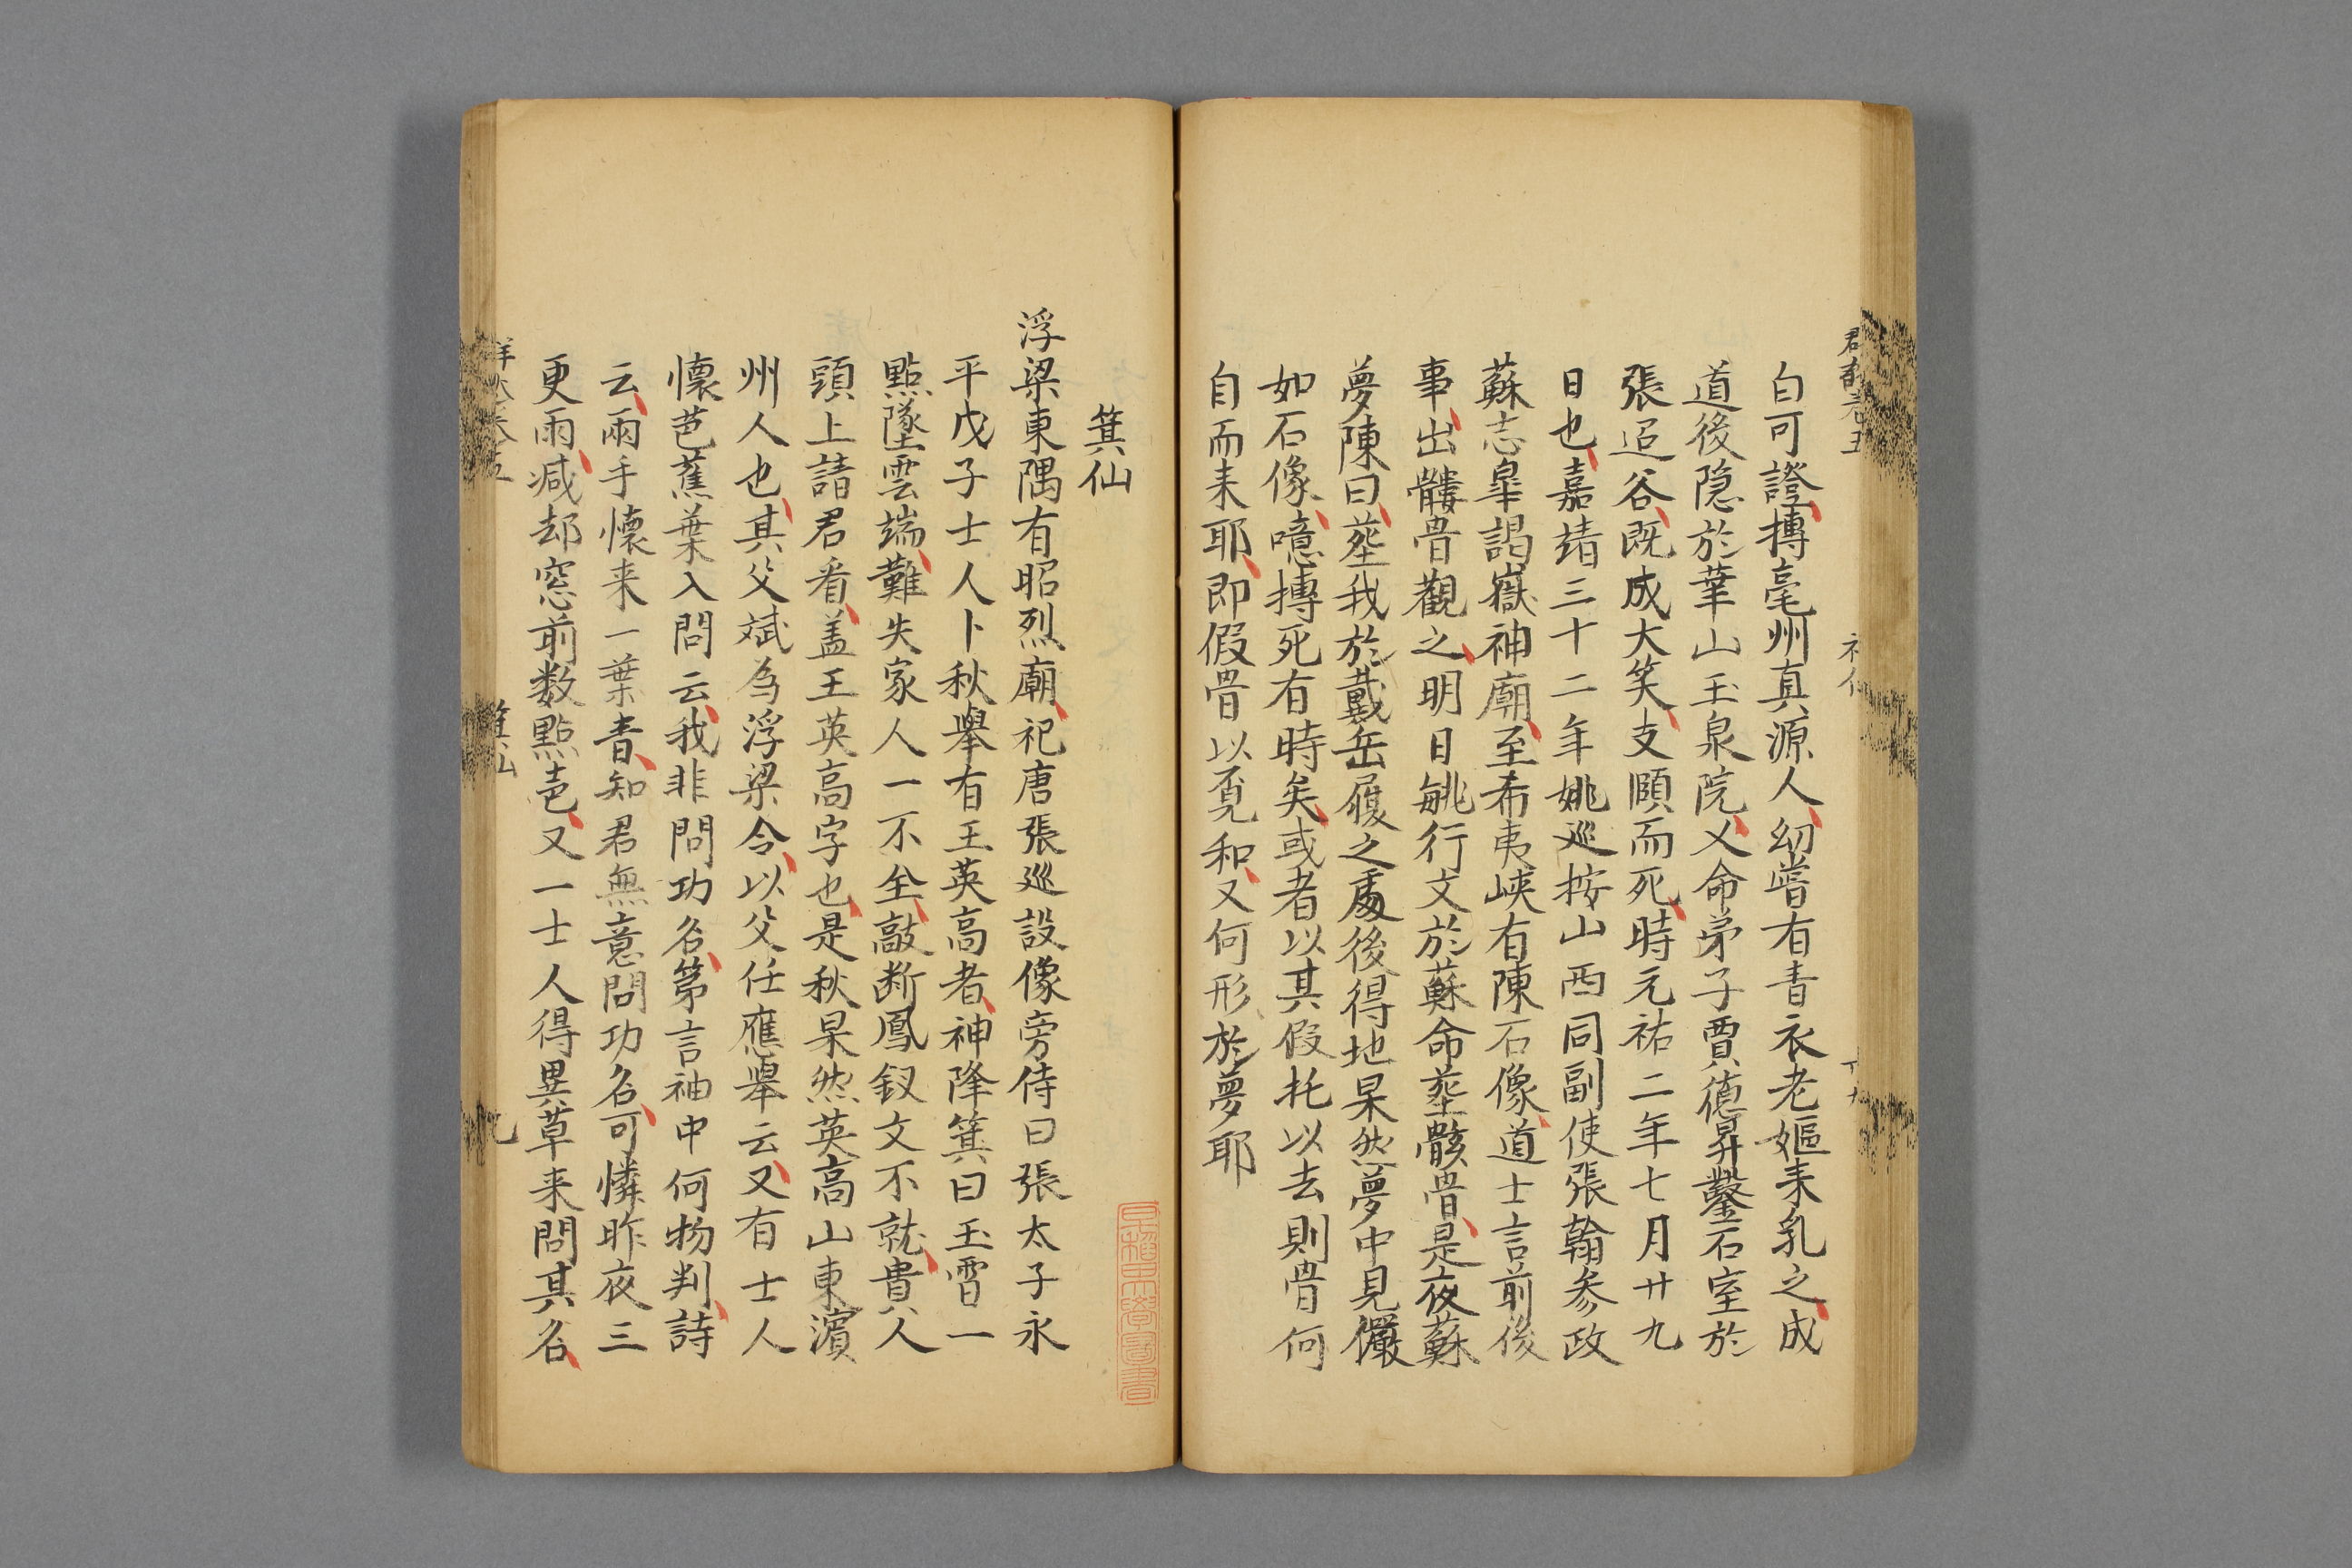 白可證摶亳州真源人幼嘗有青衣老嫗来乳之成
道後隐於華山玉泉院又命弟子賈德昇鑿石室於
張迢谷既成大笑支頤而死時元祐二年七月廿九
日也嘉靖三十二年姚巡按山西同副使張翰參政
蘇志皐謁嶽神廟至希夷峽有陳石像道士言前後
事出髏骨觀之明日毓行文於蘇命塟骸骨是夜蘇
夢陳曰塟我於戴岳履之處後得地杲然夢中見儼
如石像噫摶死有時矣或者以其假托以去則骨何
自而来耶即假骨以覓和又何形於夢耶
箕仙
浮梁東隅有昭烈廟祀唐張巡設像旁侍曰張太子永
平戊子士人卜秋舉有王英高者神降箕曰玉霄一
點墜雲端難失家人一不全敲断鳳釵文不就貴人
頭上請君看盖王英高字也是秋杲然英高山東濵
州人也其父斌為浮梁令以父任應舉云又有士人
懷芭蕉葉入問云我非問功名第言袖中何物判詩
云兩手懷来一葉青知君無意問功名可憐昨夜三
更雨减却窓前数點声又一士人得異草来問其名